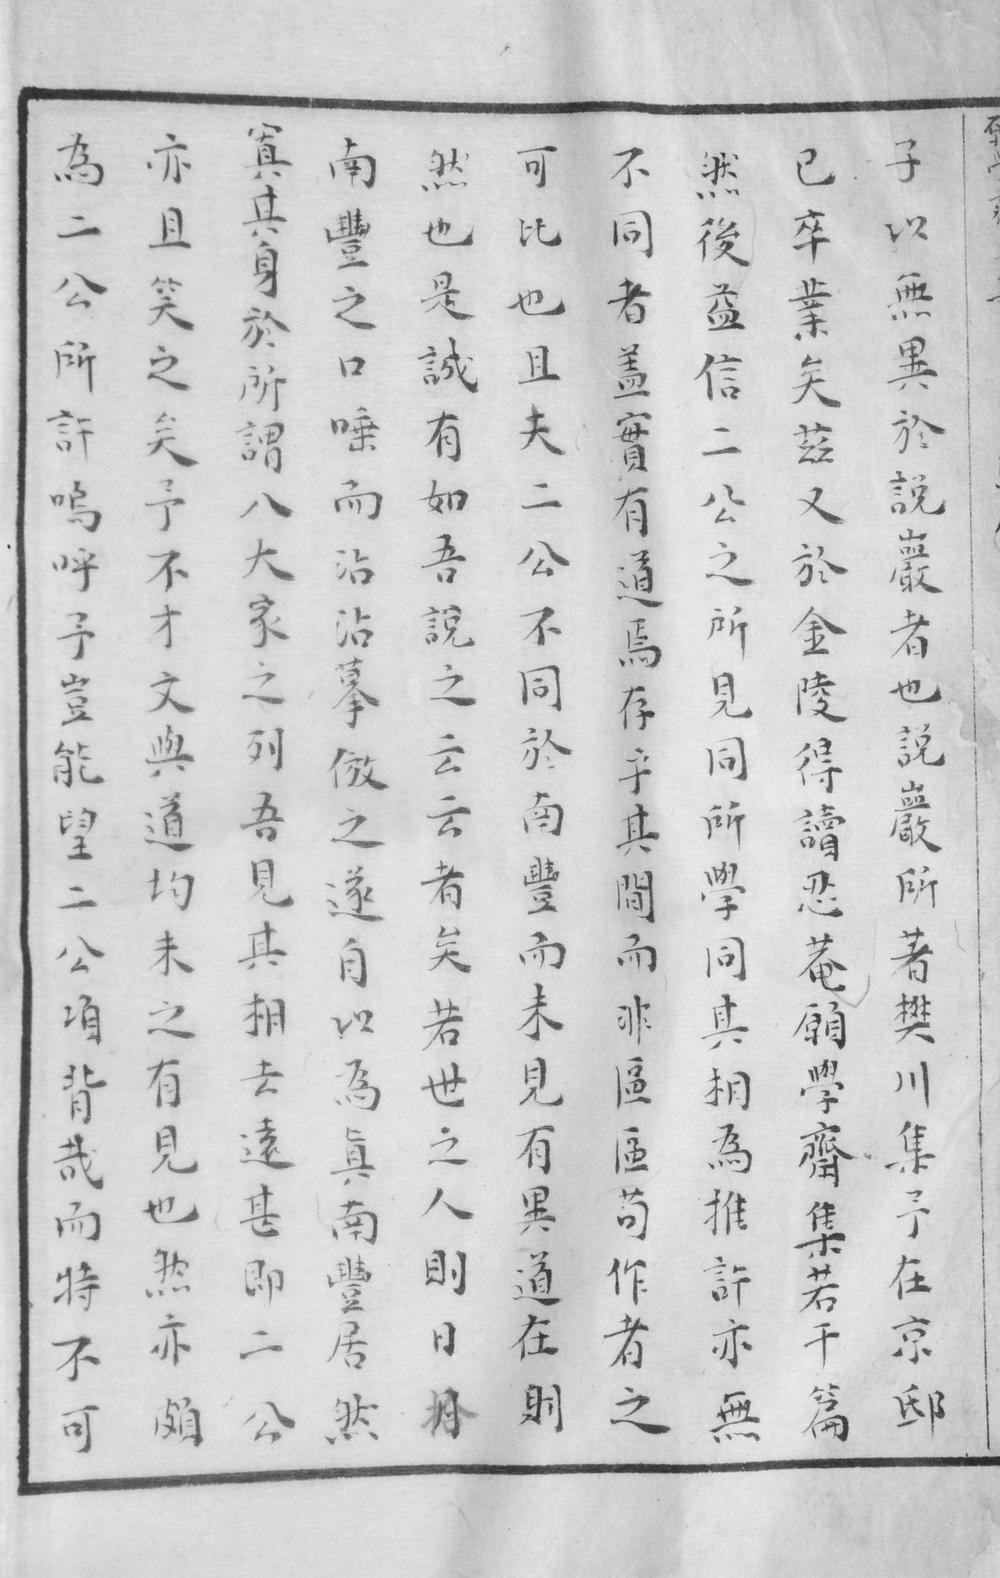 子以無異於説巖者也説巖所著樊川集予在京邸
已卒業矣茲又於金陵得讀忍菴願學齋集若干篇
然後益信二公之所見同所學同其相為推許亦無
不同者蓋實有道焉存乎其間而非區區苟作者之
可比也且夫二公不同於南豐而未見有異道在則
然也是誠有如吾説之云云者矣若世之人則日拇
南豐之口唾而沾沾摹倣之遂自以為真南豐居然
寘其身於所謂八大家之列吾見其相去遠甚即二公
亦且笑之矣予不才文與道均未之有見也然亦頗
為二公所許嗚呼予豈能望二公項背哉而特不可